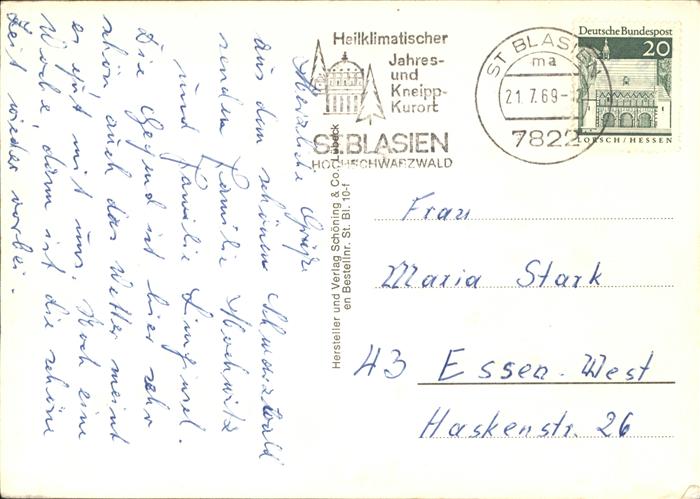 Herzliche Grüße
aus dem schönen Schwarzwald
senden Familie
und Familie
Die Gegend ist hier sehr
schön, auch das Wetter meint
es gut mit uns. Noch eine
Woche, dann ist die schöne
Zeit wieder vorbei.
Heilklimatischer
Jahres-
und
Kneipp-
Kurort
ST. BLASIEN
HOCHSCHWARZWALD
ST BLASIEN
ma
21.7.69-
7822
Deutsche Bundespost
20
LORSCH/HESSEN
Hersteller und Verlag Schöning & Co., Lübeck
en Bestellnr. St. Bl. 10-f
Frau
Maria Stark
43 Essen-West
Haskenstr. 26